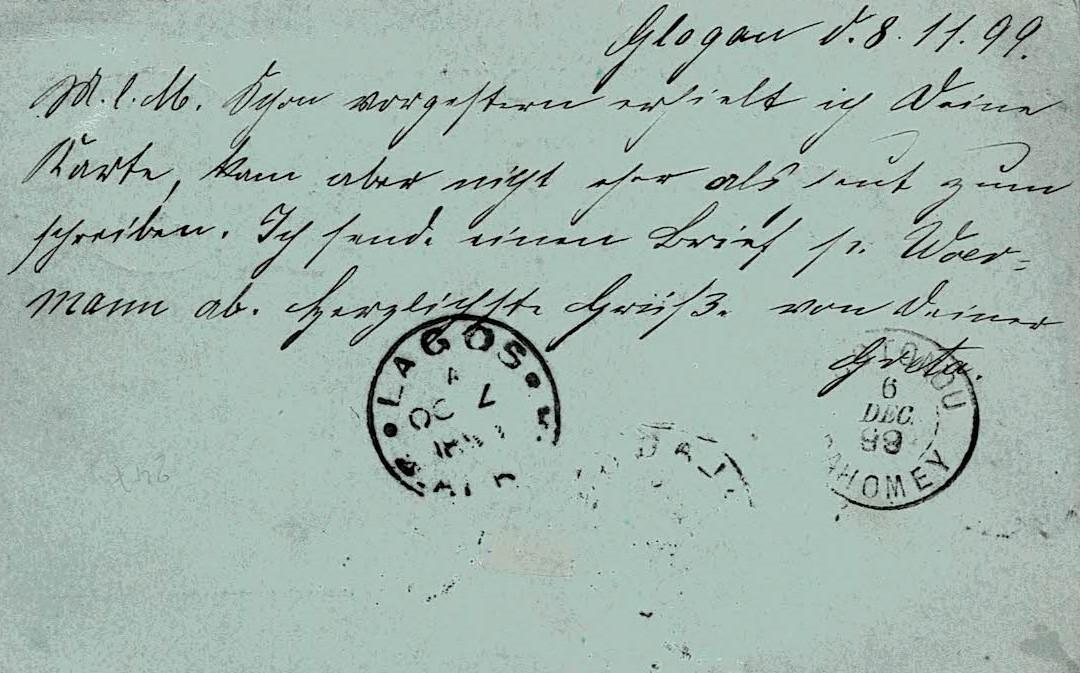 Glogau d. 8. 11. 99.
M. l. M. Schon vorgestern erhielt ich Deine
Karte, kam aber nicht eher als heut zum
schreiben. Ich sende einen Brief p. Woer-
mann ab. Herzlichste Grüße von Deiner
Greta.
LAGOS
A
OC 7
6
DEC.
99
AHOMEY